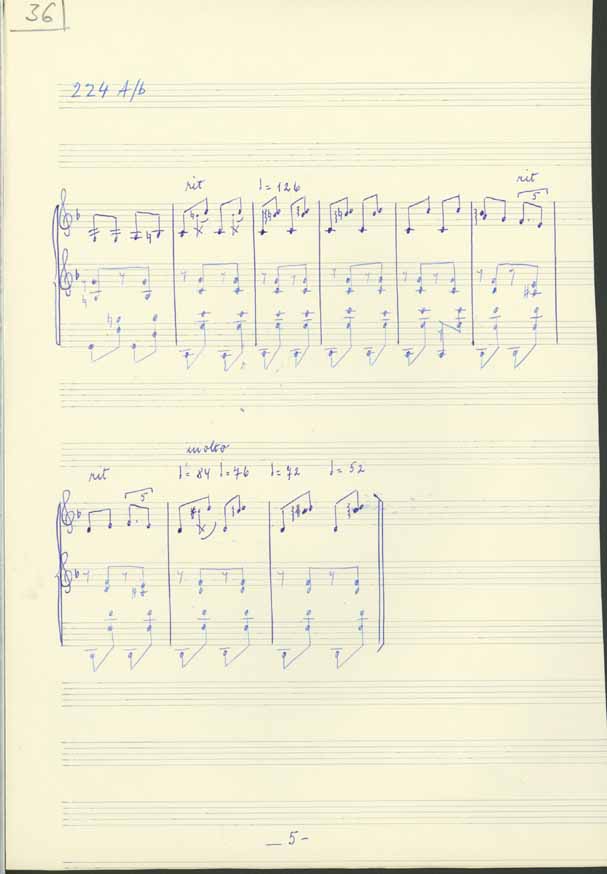 36
224 A/b
rit
♩= 126
rit
5
rit
5
molto
♩= 84 ♩= 76 ♩= 72 ♩= 52
— 5 -